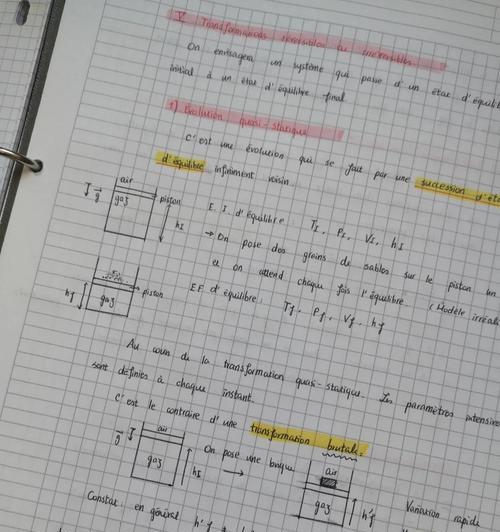 V Transformations réversibles ou irréversibles
On envisagera un système qui passe d'un état d'équil
initial à un état d'équilibre final
1) Évolution quasi-statique
C'est une évolution qui se fait par une succession d'ét
d'équilibre infiniment voisin
air
gaz
piston
g
hI
E.I. d'équilibre TI, PI, VI, hI
→ On pose des grains de sables sur le piston un
et on attend chaque fois l'équilibre. (Modèle irréali
piston
gaz
hf
EF d'équilibre, Tf, Pf, Vf, hf
Au cours de la transformation quasi-statique. Les paramètres intensives
sont définies à chaque instant.
C'est le contraire d'une transformation brutale.
air
g
gaz
hI
On pose une brique
→
air
gaz
h'f
Variation rapide
Constat : en général h'f ≠